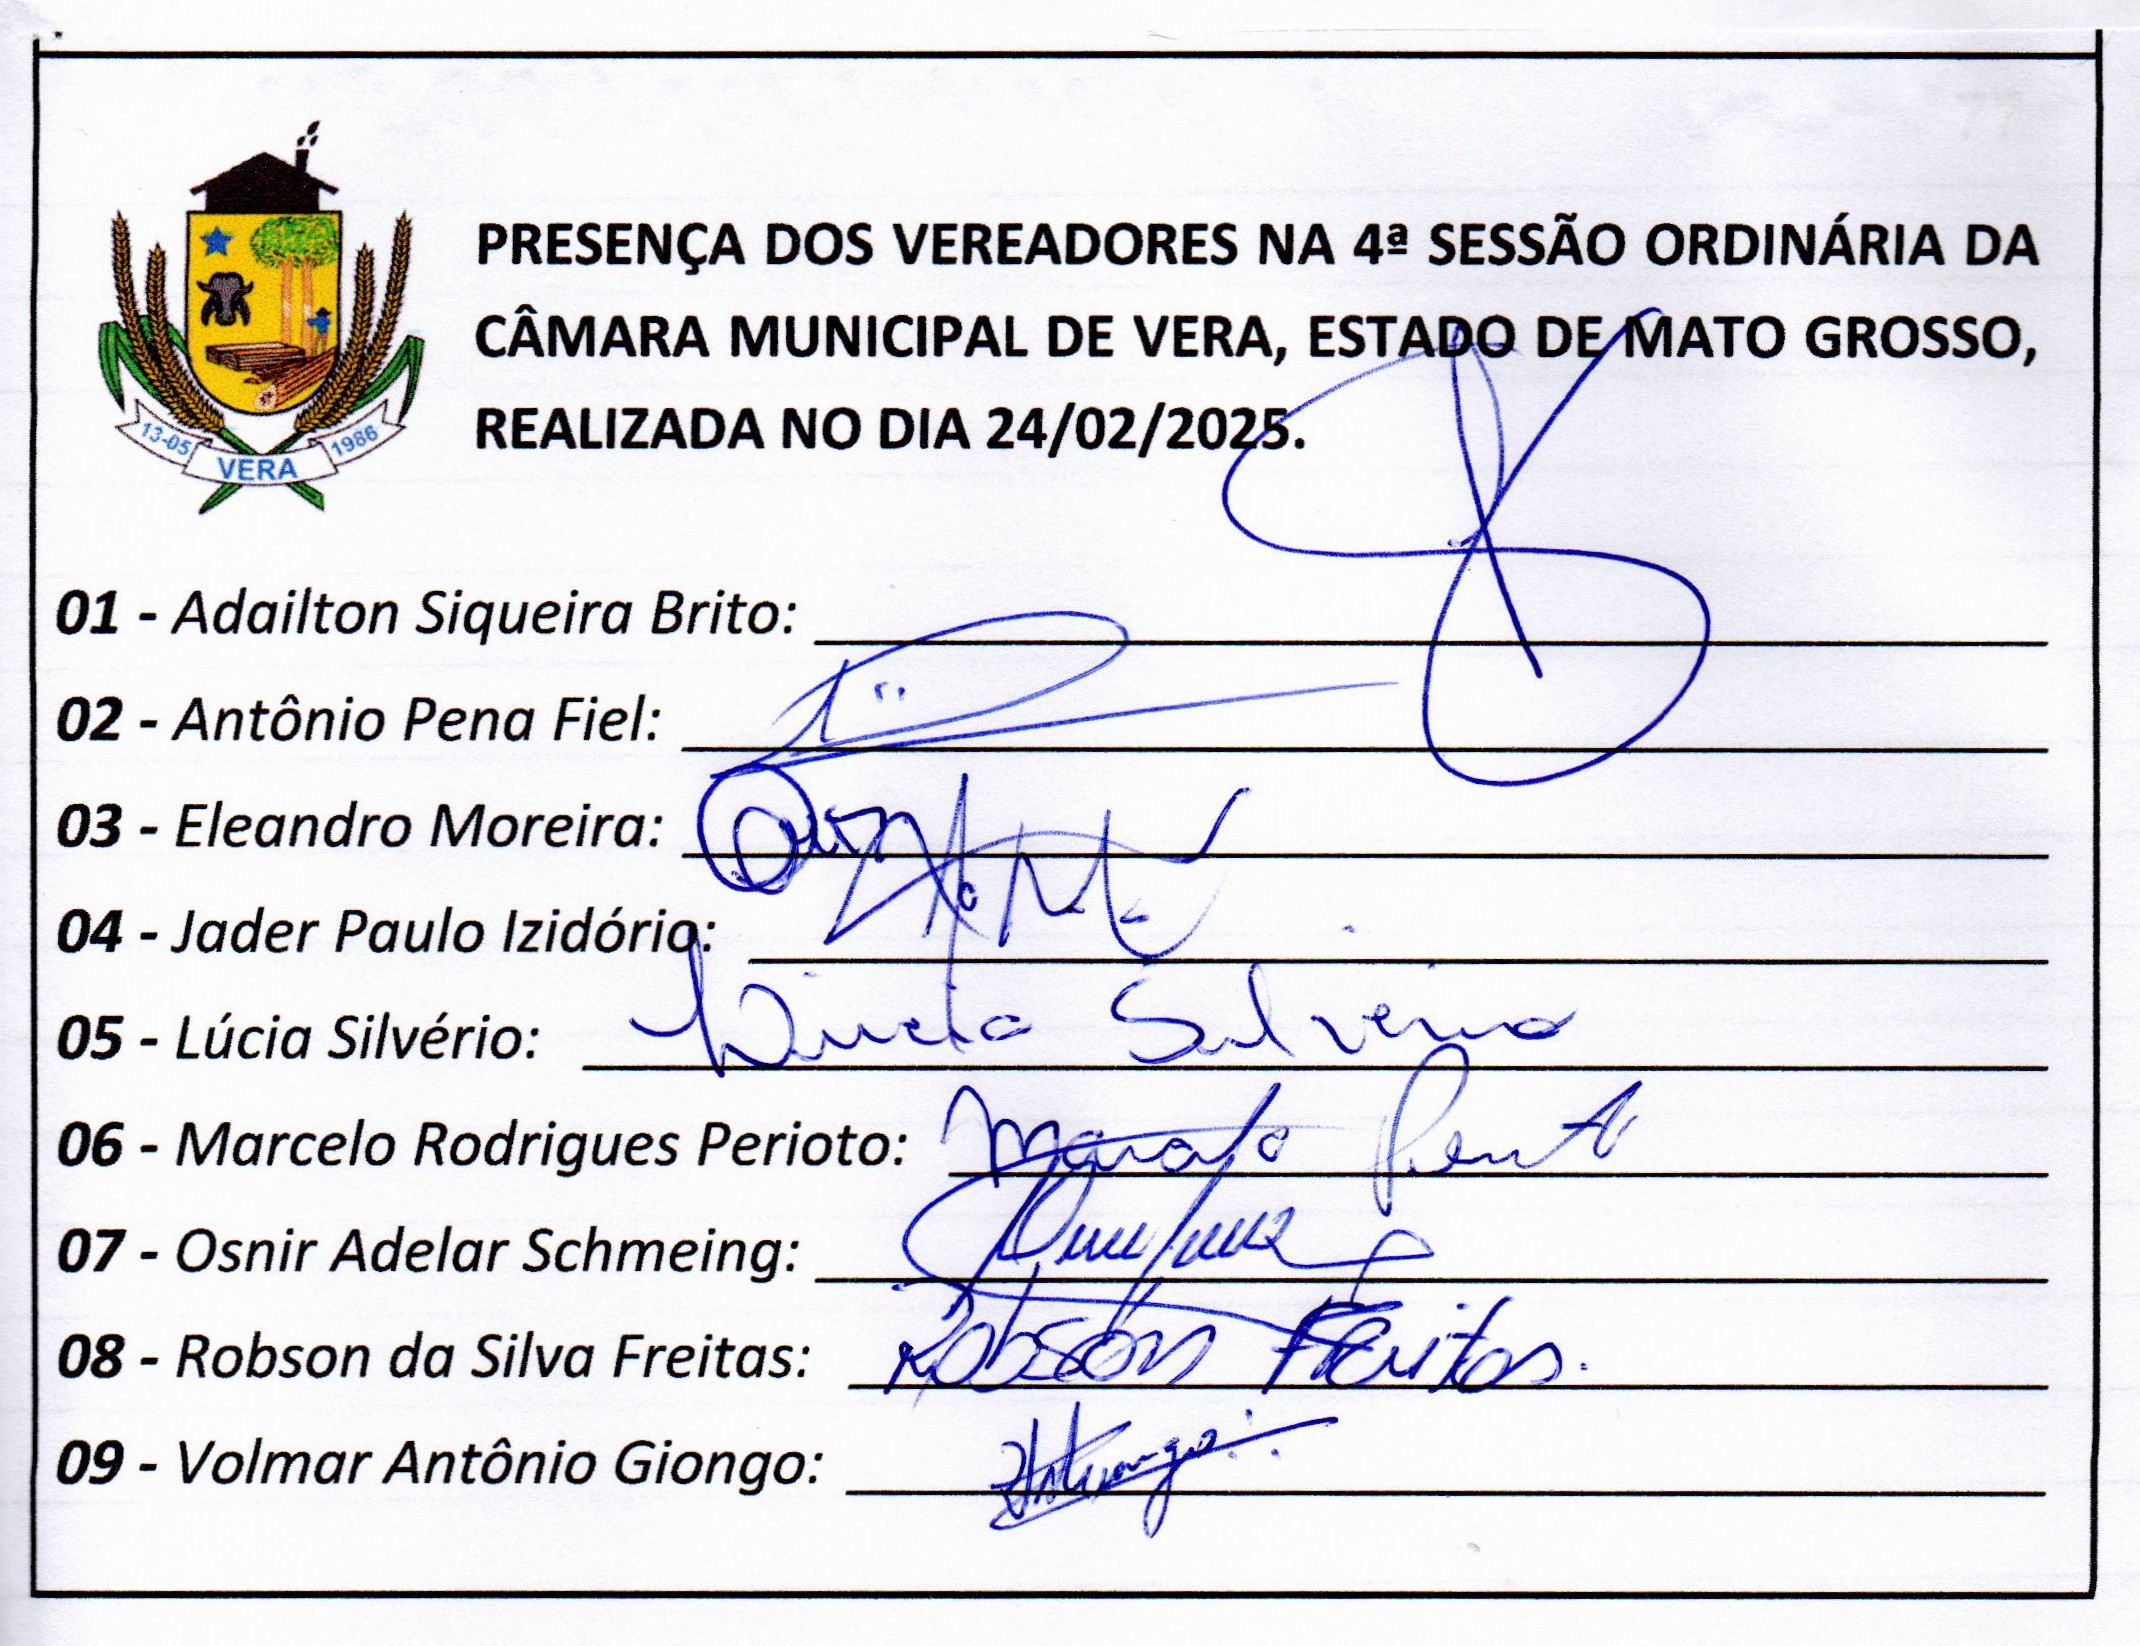 PRESENÇA DOS VEREADORES NA 4ª SESSÃO ORDINÁRIA DA
CÂMARA MUNICIPAL DE VERA, ESTADO DE MATO GROSSO,
REALIZADA NO DIA 24/02/2025.
13-05 VERA 1986
01 - Adailton Siqueira Brito:
02 - Antônio Pena Fiel:
03 - Eleandro Moreira:
04 - Jader Paulo Izidório:
05 - Lúcia Silvério: Lucia Silverio
06 - Marcelo Rodrigues Perioto: Marcelo
07 - Osnir Adelar Schmeing:
08 - Robson da Silva Freitas: Robson Freitas.
09 - Volmar Antônio Giongo: